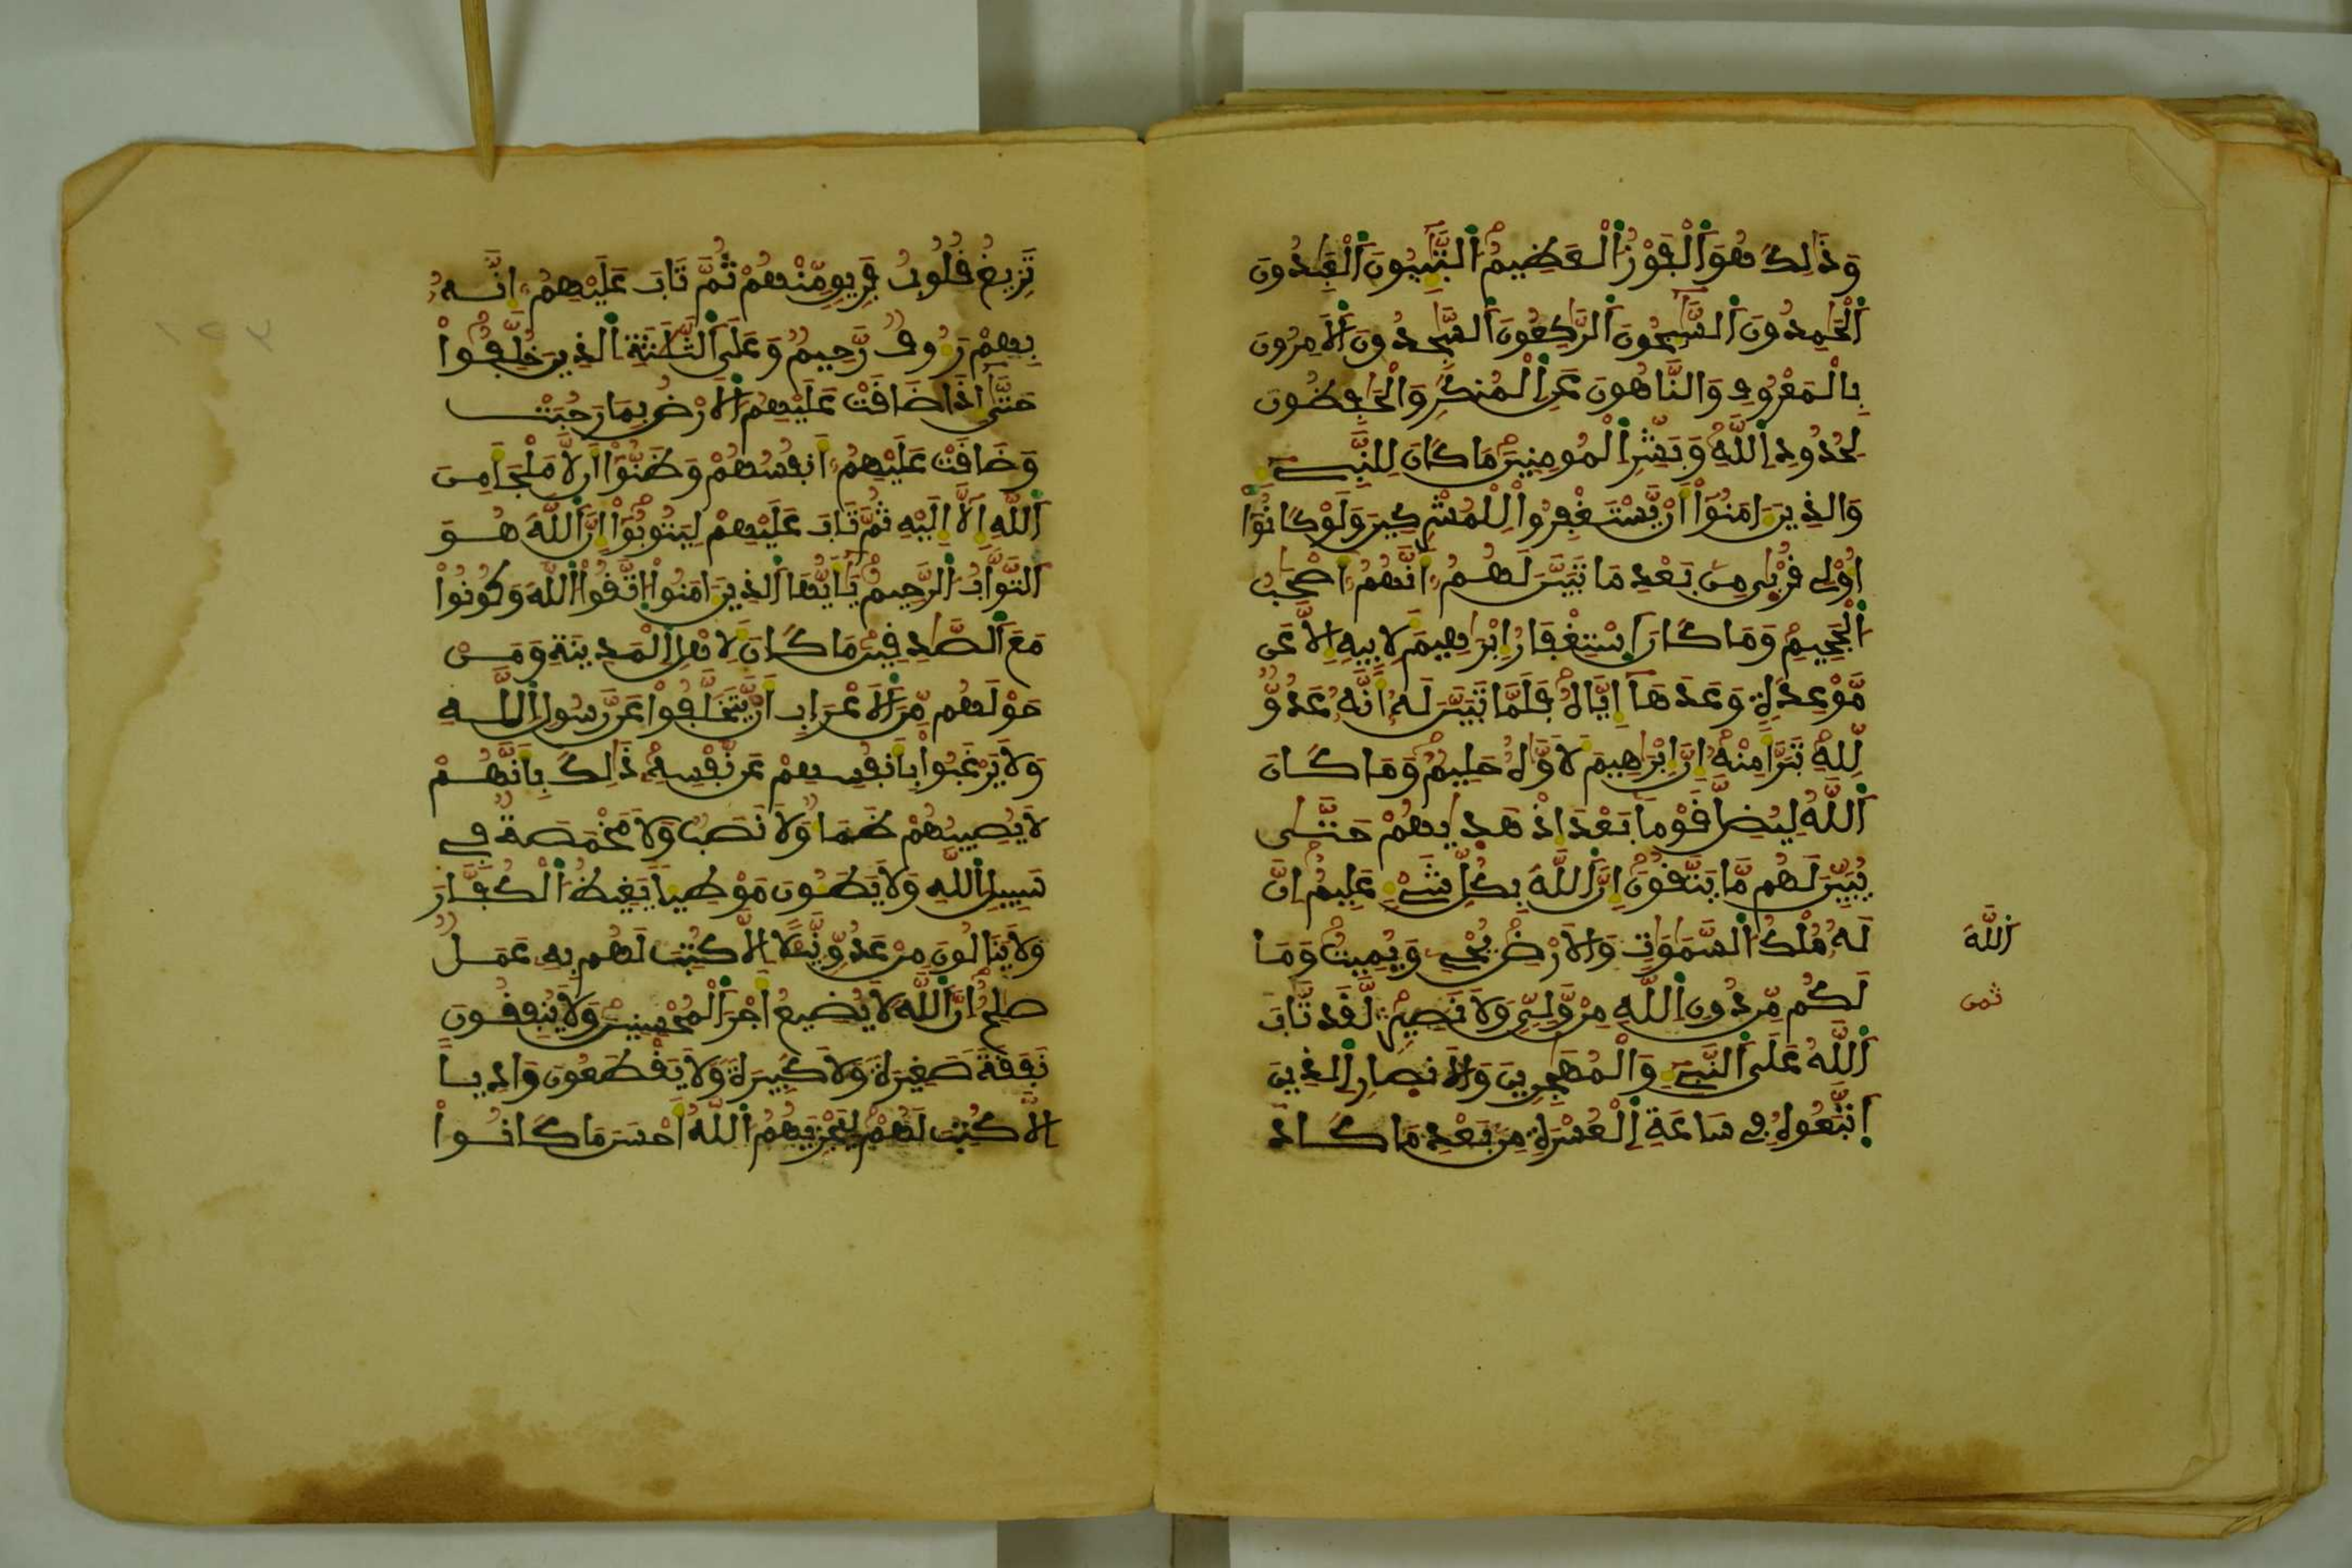 وَذَٰلِكَ هُوَ اَلْفَوْزُ اُلْعَظِيمُ اُلتَّٰٓئِبُونَ اَلْعَٰبِدُونَ
اَلْحَٰمِدُونَ اَلسَّٰٓئِحُونَ اَلرَّٰكِعُونَ اَلسَّٰجِدُونَ اَلَامِرُونَ
بِالْمَعْرُوفِ وَالنَّاهُونَ عَنِ اِلْمُنكَرِ وَالْحَٰفِظُونَ
لِحُدُودِ اِللَّهِ وَبَشِّرِ اِلْمُومِنِينَ مَا كَانَ لِلنَّبِےٓءِ
وَالذِينَ ءَامَنُوٓاْ أَنْ يَّسْتَغْفِرُواْ لِلْمُشْرِكِينَ وَلَوْ كَانُوٓاْ
أُوْلِے قُرْبٰى مِنۢ بَعْدِ مَا تَبَيَّنَ لَهُمُۥٓ أَنَّهُمُۥٓ أَصْحَٰبُ
اُلْجَحِيمِ وَمَا كَانَ اَسْتِغْفَارُ إِبْرَٰهِيمَ لِأَبِيهِ إِلَّا عَن
مَّوْعِدَةٍ وَعَدَهَآ إِيَّاهُ فَلَمَّا تَبَيَّنَ لَهُۥٓ أَنَّهُۥ عَدُوٌّ
لِّلهِ تَبَرَّأَ مِنْهُ إِنَّ إِبْرَٰهِيمَ لَأَوَّٰهٌ حَلِيمٌ وَمَا كَانَ
اَللَّهُ لِيُضِلَّ قَوْماَۢ بَعْدَ إِذْ هَدٰىهُمْ حَتَّىٰ
يُبَيِّنَ لَهُم مَّا يَتَّقُونَ إِنَّ اَللَّهَ بِكُلِّ شَےْءٍ عَلِيمٌ اِنَّ
اَللَّهَ
لَهُۥ مُلْكُ اُلسَّمَٰوَٰتِ وَالَارْضِ يُحْيِۦ وَيُمِيتُ وَمَا
ثمن
لَكُم مِّن دُونِ اِللَّهِ مِنْ وَّلِيٍّ وَلَا نَصِيرٍ لَّقَد تَّابَ
اَللَّهُ عَلَى اَلنَّبِےٓءِ وَالْمُهَٰجِرِينَ وَالَانصَارِ اِلذِينَ
اَتَّبَعُوهُ فِے سَاعَةِ اِلْعُسْرَةِ مِنۢ بَعْدِ مَا كَادَ
تَزِيغُ قُلُوبُ فَرِيقٍ مِّنْهُمْ ثُمَّ تَابَ عَلَيْهِمُۥٓ إِنَّهُۥ
بِهِمْ رَءُوفٌ رَّحِيمٌ وَعَلَى اَلثَّلَٰثَةِ اِلذِينَ خُلِّفُواْ
حَتَّىٰٓ إِذَا ضَاقَتْ عَلَيْهِمُ اُلَارْضُ بِمَا رَحُبَتْ
وَضَاقَتْ عَلَيْهِمُۥٓ أَنفُسُهُمْ وَظَنُّوٓاْ أَن لَّا مَلْجَأَ مِنَ
اَللَّهِ إِلَّآ إِلَيْهِ ثُمَّ تَابَ عَلَيْهِمْ لِيَتُوبُوٓاْ إِنَّ اَللَّهَ هُوَ
اَلتَّوَّابُ اُلرَّحِيمُ يَٰٓأَيُّهَا اَلذِينَ ءَامَنُواْ اُتَّقُواْ اُللَّهَ وَكُونُواْ
مَعَ اَلصَّٰدِقِينَ مَا كَانَ لِأَهْلِ اِلْمَدِينَةِ وَمَنْ
حَوْلَهُم مِّنَ اَلَاعْرَابِ أَنْ يَّتَخَلَّفُواْ عَن رَّسُولِ اِللَّهِ
وَلَا يَرْغَبُواْ بِأَنفُسِهِمْ عَن نَّفْسِهِۦ ذَٰلِكَ بِأَنَّهُمْ
لَا يُصِيبُهُمْ ظَمَأٌ وَلَا نَصَبٌ وَلَا مَخْمَصَةٌ فِے
سَبِيلِ اِللَّهِ وَلَا يَطَـُٔونَ مَوْطِئاً يَغِيظُ اُلْكُفَّارَ
وَلَا يَنَالُونَ مِنْ عَدُوٍّ نَّيْلًا إِلَّا كُتِبَ لَهُم بِهِۦ عَمَلٌ
صَٰلِحٌ اِنَّ اَللَّهَ لَا يُضِيعُ أَجْرَ اَلْمُحْسِنِينَ وَلَا يُنفِقُونَ
نَفَقَةً صَغِيرَةً وَلَا كَبِيرَةً وَلَا يَقْطَعُونَ وَادِياً
اِلَّا كُتِبَ لَهُمْ لِيَجْزِيَهُمُ اُللَّهُ أَحْسَنَ مَا كَانُواْ